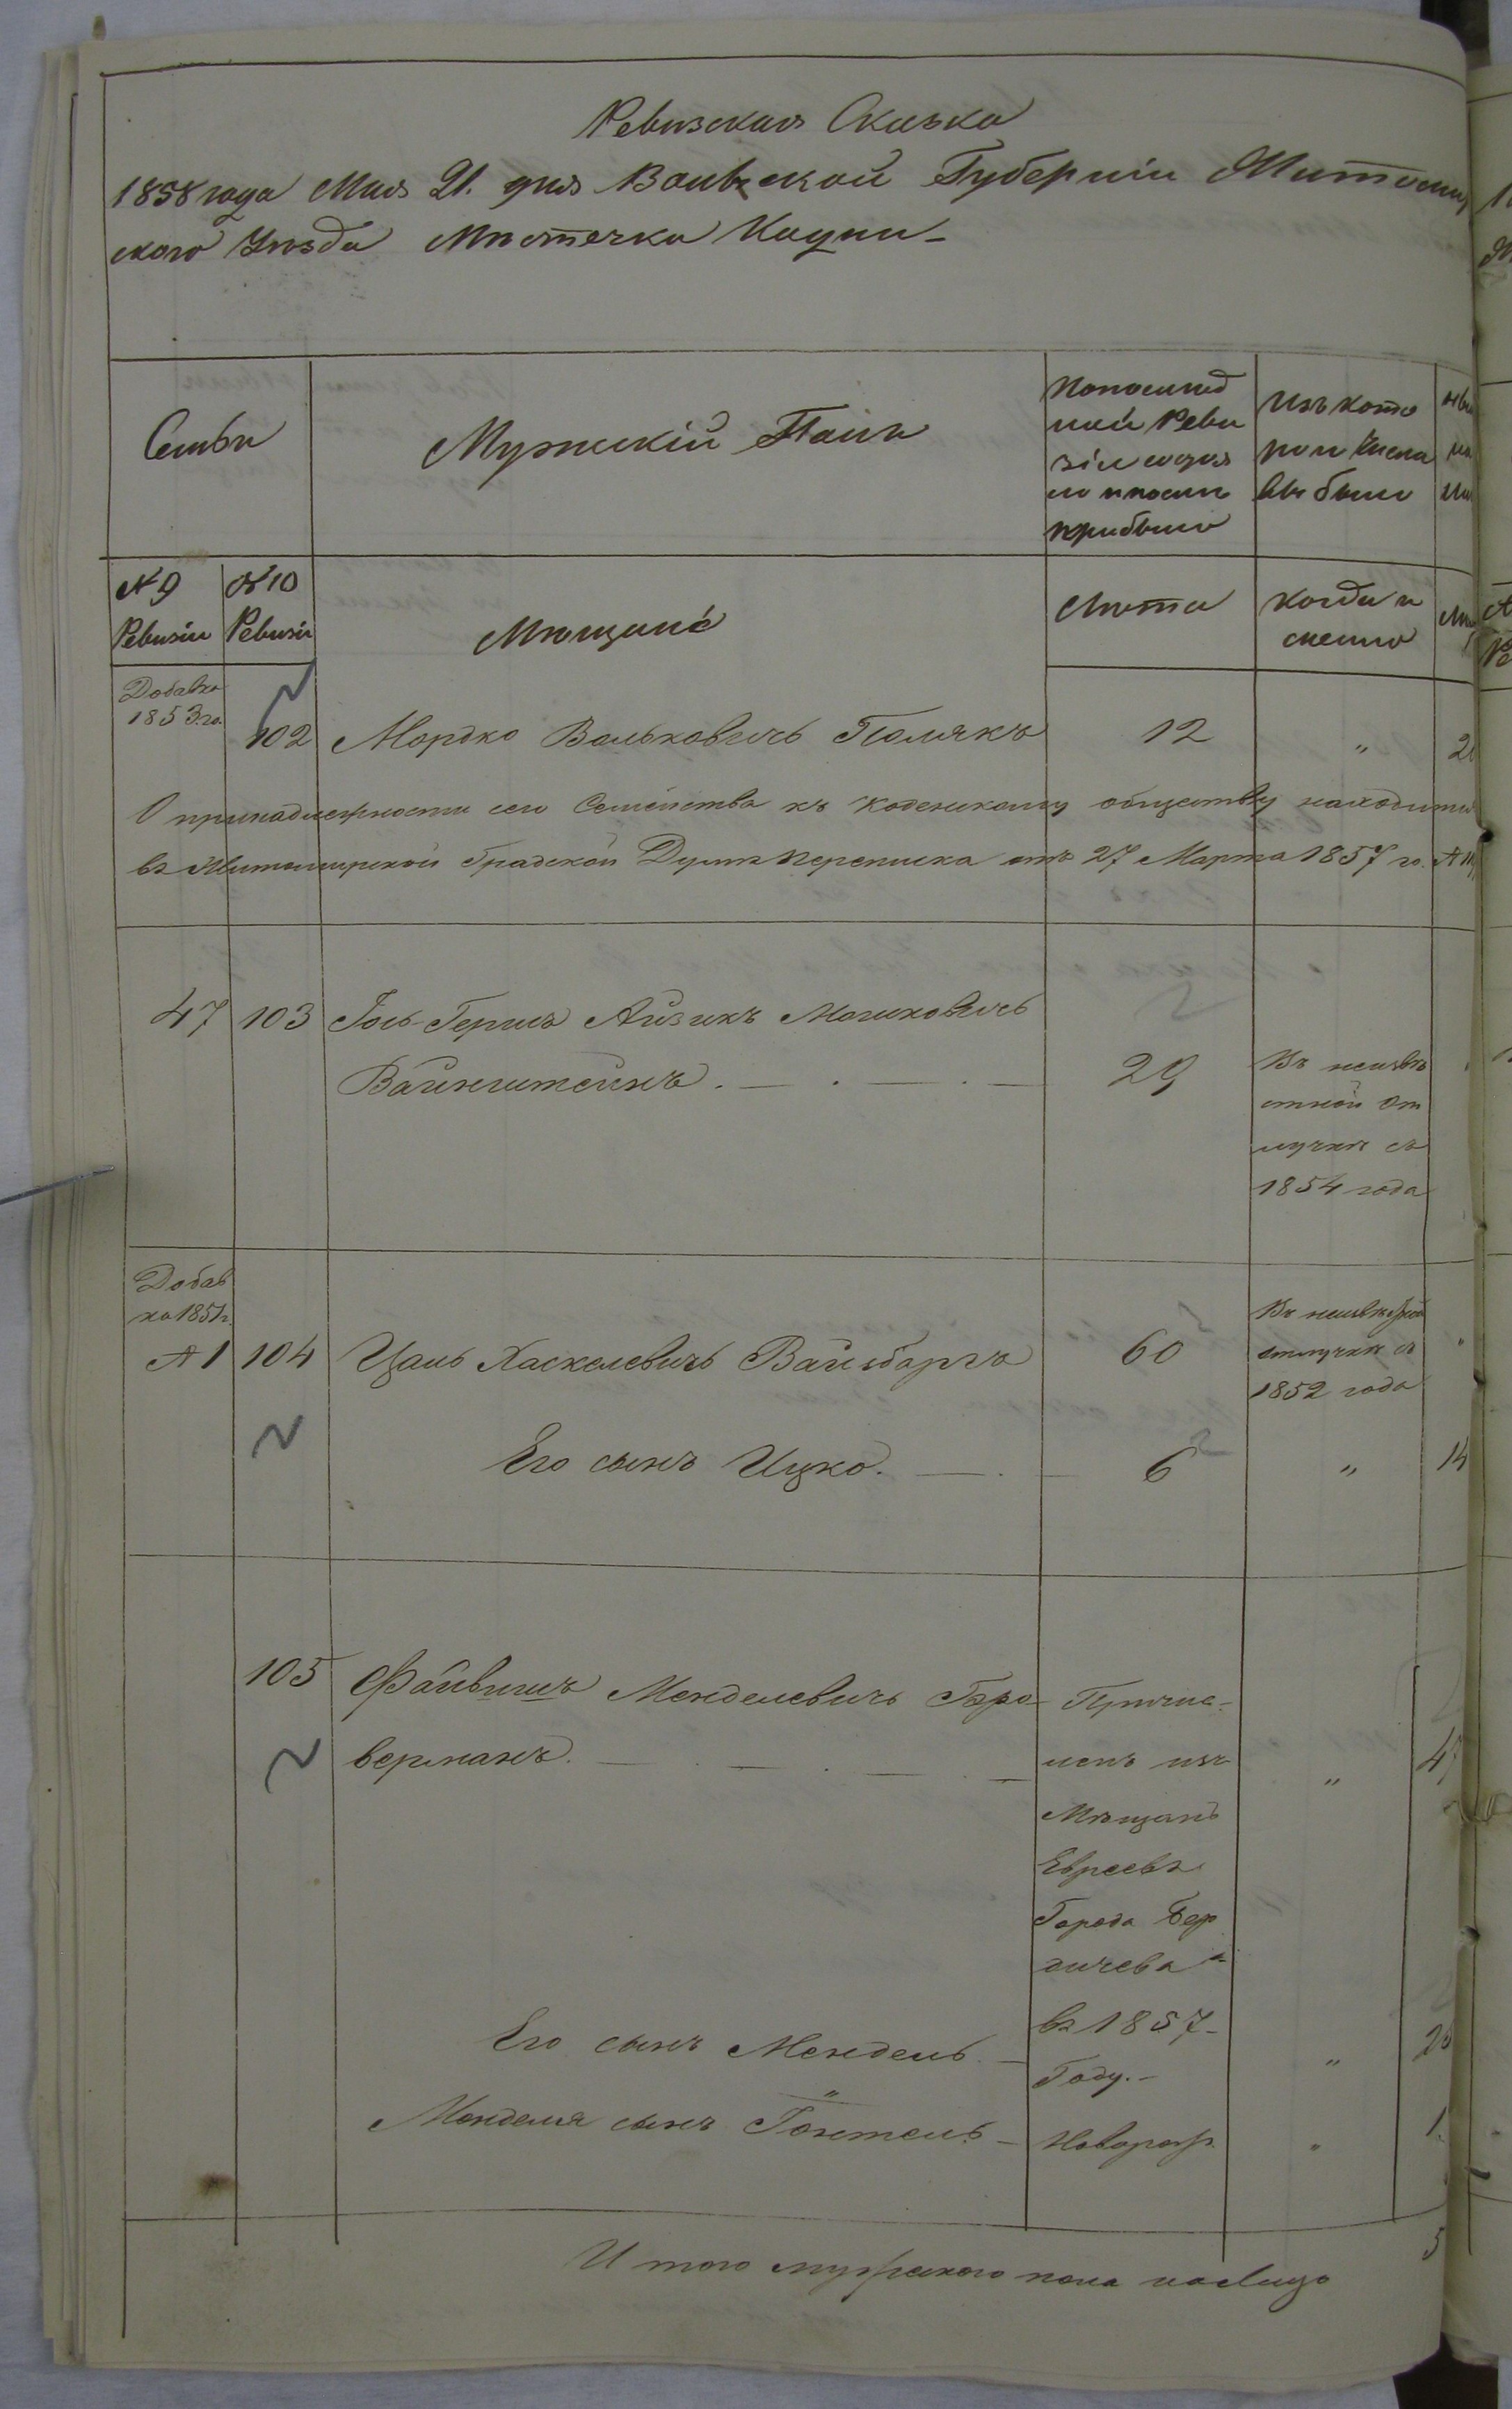 Ревизская Сказка
1858 года Мая 21. дня Волынской Губерніи Житомир
скаго Уѣзда Мѣстечка Кодни
Семьи
Мужескій Полъ
По послѣд
ней Реви
зіи состоя
ло и послѣ
прибыло
Изъ кото
раго числа
выбыло
№ 9
Ревизіи
№ 10
Ревизіи
Мѣщанѣ
Лѣта
Когда и
именно
Добавка
1853 го.
102 Мордко Вольковичъ Полякъ 12 "
О принадлежности сего Семейства къ Коденскому обществу находится
въ Житомирской Градской Думѣ переписка отъ 27 Марта 1857 го. №
47 103 Іось-Гершъ Айзикъ Мошковичъ
Вайнштейнъ. 29
Въ неизвѣ
стной От
лучкѣ съ
1854 года
Добав
ка 1851 г.
№ 1 104 Цаль Хаскелевичъ Вайсбаргъ 60
Въ неизвѣстной
отлучкѣ съ
1852 года
Его сынъ Ицко. 6 " 14
105 Файвишъ Менделевичъ
верманъ.
Причис-
ленъ изъ
Мѣщанъ
Евреевъ
Города Бер
дичева
въ 1857
Году.
"
Его сынъ Мендель "
Менделя сынъ Новорож. " 1
Итого мужескаго пола налицо 5